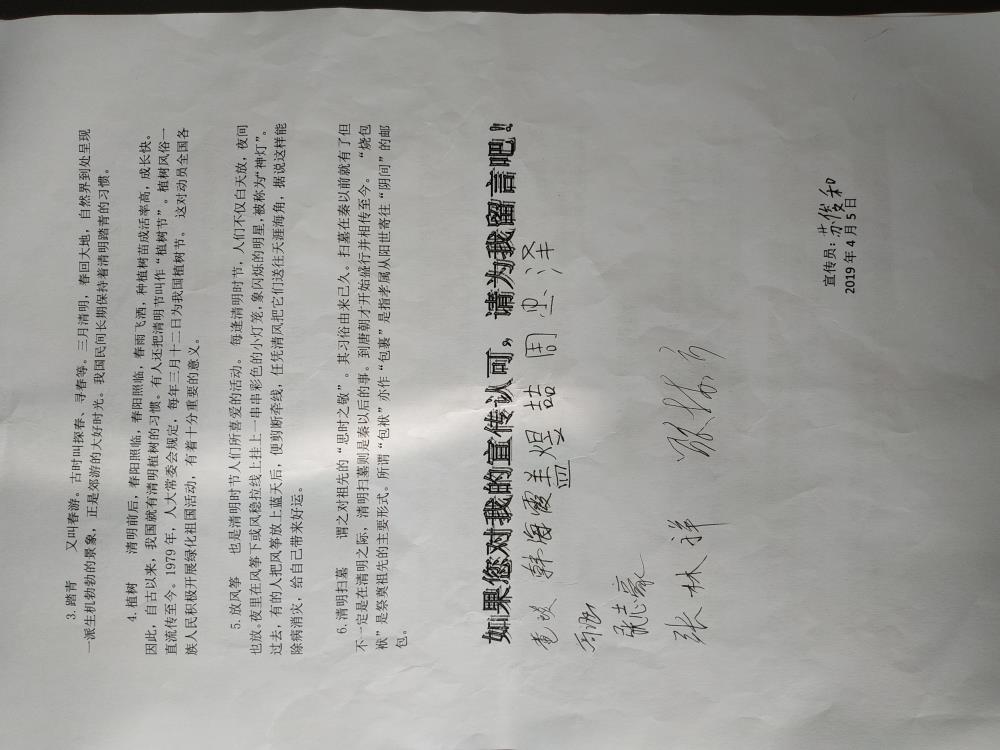 3. 踏青　　又叫春游。古时叫探春、寻春等。三月清明，春回大地，自然界到处呈现
一派生机勃勃的景象，正是郊游的大好时光。我国民间长期保持着清明踏青的习惯。
4. 植树　　清明前后，春阳照临，春阳照临，春雨飞洒，种植树苗成活率高，成长快。
因此，自古以来，我国就有清明植树的习惯。有人还把清明节叫作“植树节”。植树风俗一
直流传至今。1979 年，人大常委会规定，每年三月十二日为我国植树节。这对动员全国各
族人民积极开展绿化祖国活动，有着十分重要的意义。
5. 放风筝　　也是清明时节人们所喜爱的活动。每逢清明时节，人们不仅白天放，夜间
也放。夜里在风筝下或风稳拉线上挂上一串串彩色的小灯笼，象闪烁的明星，被称为“神灯”。
过去，有的人把风筝放上蓝天后，便剪断牵线，任凭清风把它们送往天涯海角，据说这样能
除病消灾，给自己带来好运。
6. 清明扫墓　　谓之对祖先的“思时之敬”。其习俗由来已久。扫墓在秦以前就有了但
不一定是在清明之际，清明扫墓则是秦以后的事。到唐朝才开始盛行并相传至今。“烧包
袱”是祭奠祖先的主要形式。所谓“包袱”亦作“包裹”是指孝属从阳世寄往“阴间”的邮
包。
如果您对我的宣传认可，请为我留言吧！
韩海霞 盖煜喆 周思泽
张志豪
张林祥
宣传员：苏俊和
2019 年 4 月 5 日